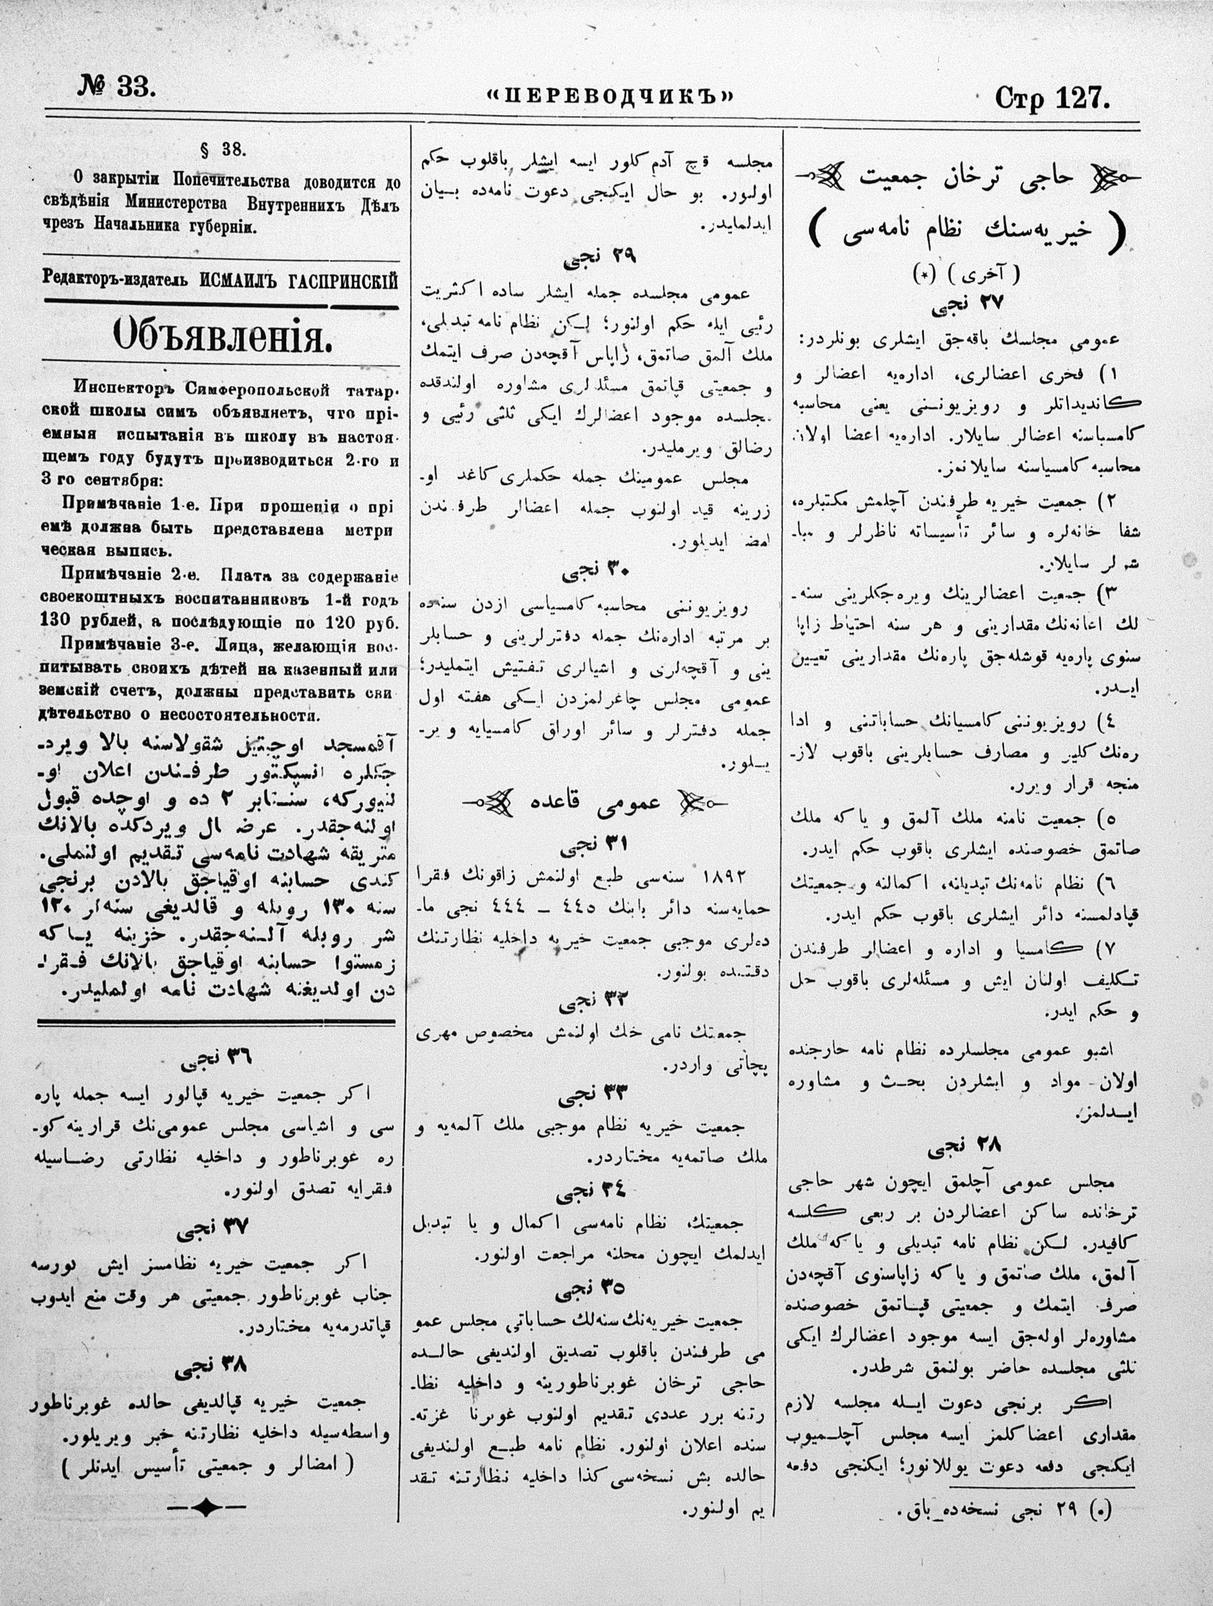 № 33.
«ПЕРЕВОДЧИКЪ»
Стр 127.
§ 38.
О закрытіи Попечительства доводится до
свѣдѣнія Министерства Внутреннихъ Дѣлъ
чрез Начальника губерніи.
Редакторъ-издатель ИСМАИЛЪ ГАСПРИНСКІЙ
Объявленія.
Инспекторъ Симферопольской татар-
ской школы симъ объявляетъ, что прі-
емныя испытанія въ школу въ настоя-
щемъ году будутъ производиться 2-го и
3 го сентября:
Примѣчаніе 1-е. При прошеніи о прі
емѣ должна быть представлена метри
ческая выпись.
Примѣчаніе 2-е. Плата за содержаніе
своекоштныхъ воспитанниковъ 1-й годъ
130 рублей, а послѣдующіе по 120 руб.
Примѣчаніе 3-е. Лица, желающія вос-
питывать своихъ дѣтей на казенный или
земскій счетъ, должны представить сви
дѣтельство о несостоятельности.
آقمسجد اوچیتیل شقولاسنه بالا ویرد-
جكلره انسپكتور طرفندن اعلان او-
لنیوركه، سنتابر ۲ ده و اوچده قبول
اولنه‌جقدر. عرضحال ویردكده بالانك
متریقه شهادت نامه‌سی تقدیم اولنملی.
كندی حسابنه اوقیاجق بالادن برنجی
سنه ۱۳۰ روبله و قالدیغی سنه‌لر ۱۲۰
شر روبله آلنه‌جقدر. خزینه یاكه
زمستوا حسابنه اوقیاجق بالانك فقرا-
دن اولدیغنه شهادت نامه اولملیدر.
۳٦ نجی
اكر جمعیت خیریه قپالور ایسه جمله پاره
سی و اشیاسی مجلس عمومی‌نك قرارینه كو-
ره غوبرناطور و داخلیه نظارتی رضاسیله
فقرایه تصدق اولنور.
۳۷ نجی
اكر جمعیت خیریه نظامسز ایش كورسه
جناب غوبرناطور جمعیتی هر وقت منع ایدوب
قپاتدرمه‌یه مختاردر.
۳۸ نجی
جمعیت خیریه قپالدیغی حالده غوبرناطور
واسطه‌سیله داخلیه نظارتنه خبر ویریلور.
( امضالر و جمعیتی تأسیس ایدنلر )
مجلسه قچ آدم كلور ایسه ایشلر باقلوب حكم
اولنور. بو حال ایكنجی دعوت نامه‌ده بیان
ایدلمایدر.
۲۹ نجی
عمومی مجلسده جمله ایشلر ساده اكثریت
رئیی ایله حكم اولنور؛ لكن نظام نامه تبدیلی،
ملك آلمق صاتمق، زاپاس آقچه‌دن صرف ایتمك
و جمعیتی قپاتمق مسئله‌لری مشاوره اولندقده
مجلسده موجود اعضالرك ایكی ثلثی رئیی و
رضالق ویرملیدر.
مجلس عمومینك جمله حكملری كاغد او-
زرینه قید اولنوب جمله اعضالر طرفندن
امضا ایدیلور.
۳۰ نجی
رویزیوننی محاسبه كامسیاسی ازدن سنه‌ده
بر مرتبه اداره‌نك جمله دفترلرینی و حسابلر
ینی و آقچه‌لری و اشیالری تفتیش ایتملیدر؛
عمومی مجلس چاغرلمزدن ایكی هفته اول
جمله دفترلر و سائر اوراق كامسیایه ویر-
یلور.
عمومی قاعده
۳۱ نجی
۱۸۹۲ سنه‌سی طبع اولنمش زاقونك فقرا
حمایه‌سنه دائر بابنك ٤٤٥ — ٤٤٤ نجی ما-
ده‌لری موجبی جمعیت خیریه داخلیه نظارتنك
دقتنده بولنور.
۳۲ نجی
جمعتك نامی حك اولنمش مخصوص مهری
پچاتی واردر.
۳۳ نجی
جمعیت خیریه نظام موجبی ملك آلمه‌یه و
ملك صاتمه‌یه مختاردر.
۳٤ نجی
جمعیتك نظام نامه‌سی اكمال و یا تبدیل
ایدلمك ایچون محلنه مراجعت اولنور.
۳٥ نجی
جمعیت خیریه‌نك سنه‌لك حساباتی مجلس عمو
می طرفندن باقلوب تصدیق اولندیغی حالده
حاجی ترخان غوبرناطورینه و داخلیه نظا-
رتنه برر عددی تقدیم اولنوب غوبرنا غزته-
سنده اعلان اولنور. نظام نامه طبع اولندیغی
حالده بش نسخه‌سی كذا داخلیه نظارتنه تقد
یم اولنور.
حاجی ترخان جمعیت
( خیریه‌سنك نظام نامه‌سی )
( آخری ) (*)
۲۷ نجی
عمومی مجلسك باقه‌جق ایشلری بونلردر:
۱) فخری اعضالری، اداره‌یه اعضالر و
كاندیداتلر و رویزیوننی یعنی محاسبه
كامسیاسنه اعضالر سایلار. اداره‌یه اعضا اولان
محاسبه كامسیاسنه سایلانمز.
۲) جمعیت خیریه طرفندن آچلمش مكتبلره،
شفا خانه‌لره و سائر تأسیساته ناظرلر و مبا-
شرلر سایلار.
۳) جمعیت اعضالرینك ویره‌جكلرینی سنه-
لك اعانه‌نك مقدارینی و هر سنه احتیاط زاپا
سنوی پاره‌یه قوشله‌جق پاره‌نك مقدارینی تعیین
ایدر.
٤) رویزیوننی كامسیانك حساباتنی و ادا
ره‌نك كلیر و مصارف حسابلرینی باقوب لاز-
منجه قرار ویرر.
٥) جمعیت نامنه ملك آلمق و یاكه ملك
صاتمق خصوصنده ایشلری باقوب حكم ایدر.
٦) نظام نامه‌نك تبدیانه، اكمالنه و جمعیتك
قپادلمسنه دائر ایشلری باقوب حكم ایدر.
۷) كامسیا و اداره و اعضالر طرفندن
تكلیف اولنان ایش و مسئله‌لری باقوب حل
و حكم ایدر.
اشبو عمومی مجلسلرده نظام نامه خارجنده
اولان مواد و ایشلردن بحث و مشاوره
ایدلمز.
۲۸ نجی
مجلس عمومی آچلمق ایچون شهر حاجی
ترخانده ساكن اعضالردن بر ربعی كلسه
كافیدر. لكن نظام نامه تبدیلی و یاكه ملك
آلمق، ملك صاتمق و یاكه زاپاسنوی آقچه‌دن
صرف ایتمك و جمعیتی قپاتمق خصوصنده
مشاوره‌لر اوله‌جق ایسه موجود اعضالرك ایكی
ثلثی مجلسده حاضر بولنمق شرطدر.
اكر برنجی دعوت ایله مجلسه لازم
مقداری اعضا كلمز ایسه مجلس آچلمیوب
ایكنجی دفعه دعوت یوللانور؛ ایكنجی دفعه
(*) ۲۹ نجی نسخه‌ده باق.